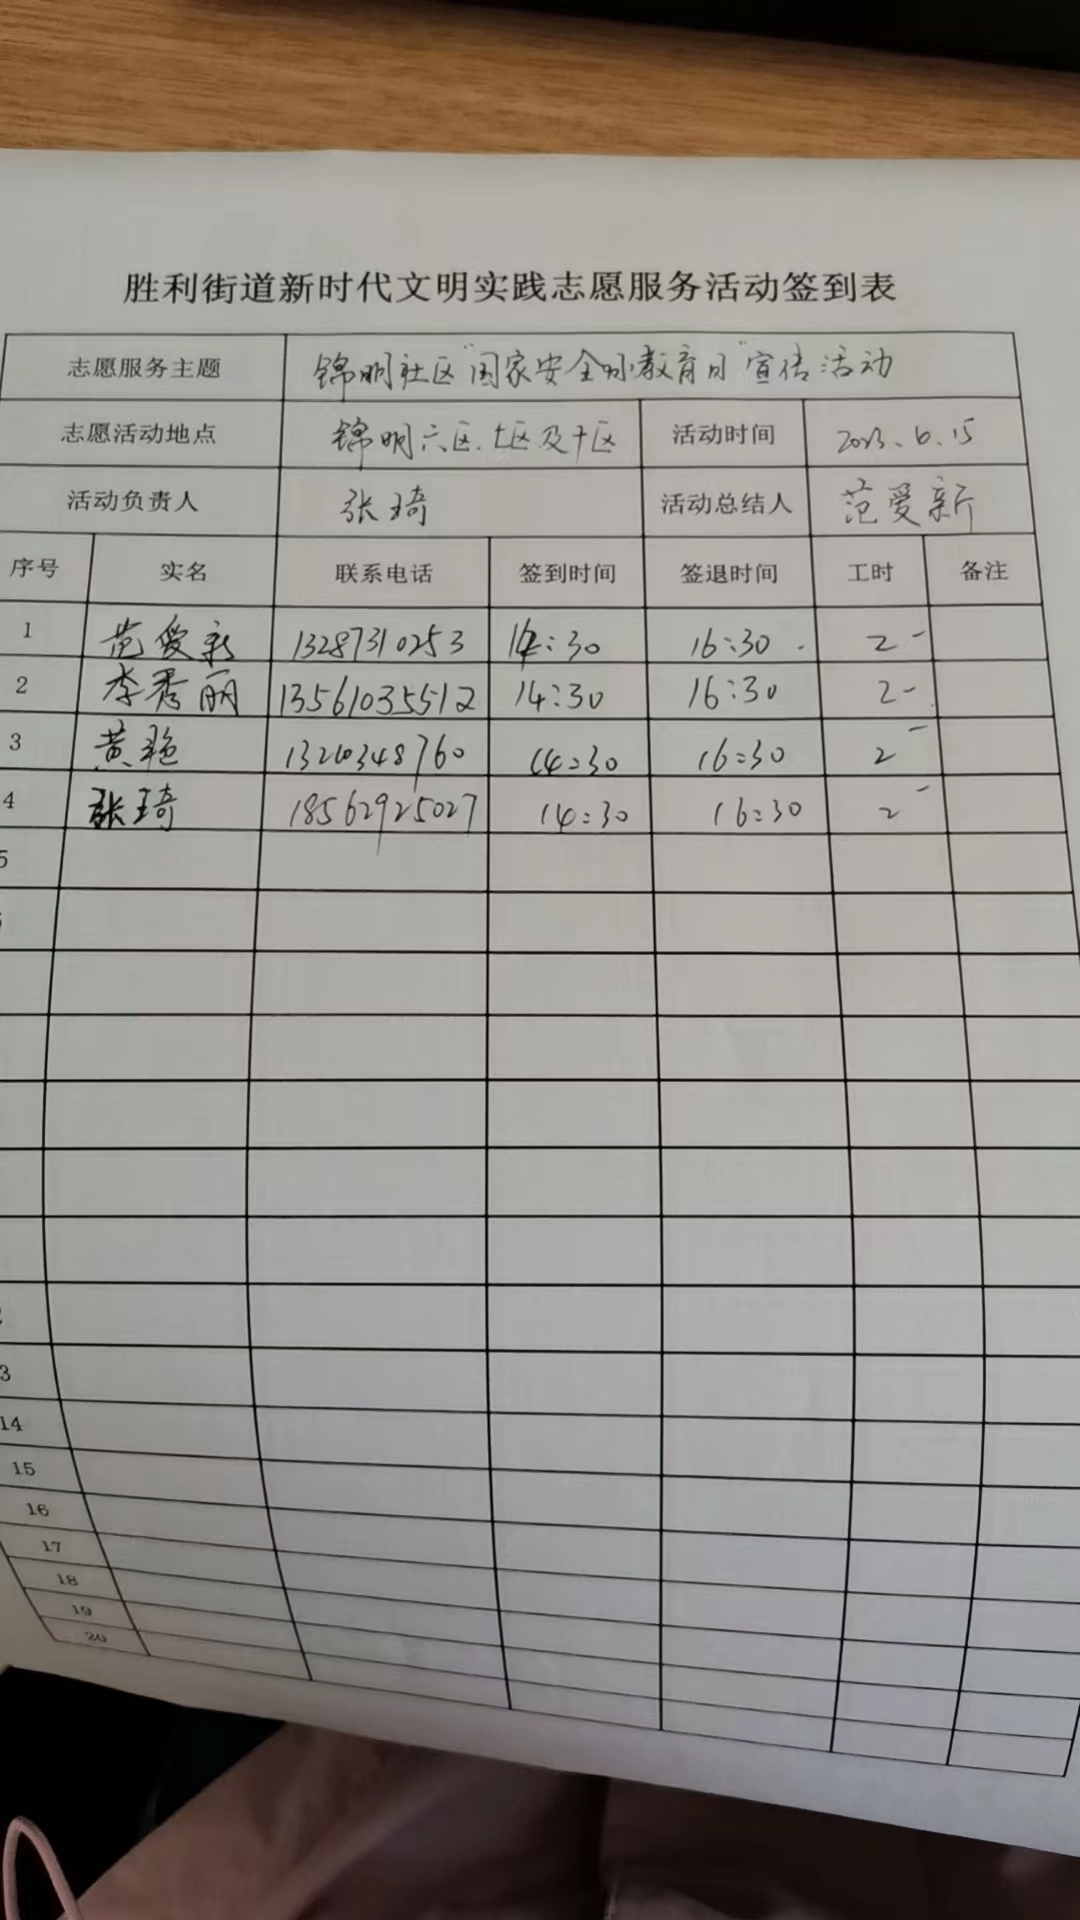 胜利街道新时代文明实践志愿服务活动签到表
志愿服务主题 锦明社区"国家安全教育日"宣传活动
志愿活动地点 锦明六区、七区及十区 活动时间 2023.6.15
活动负责人 张琦 活动总结人 范爱新
序号 实名 联系电话 签到时间 签退时间 工时 备注
1 范爱新 13287310253 14:30 16:30 2
2 李秀丽 13561035512 14:30 16:30 2
3 黄艳 13210348760 14:30 16:30 2
4 张琦 18562925027 14:30 16:30 2
5
3
14
15
16
17
18
19
20